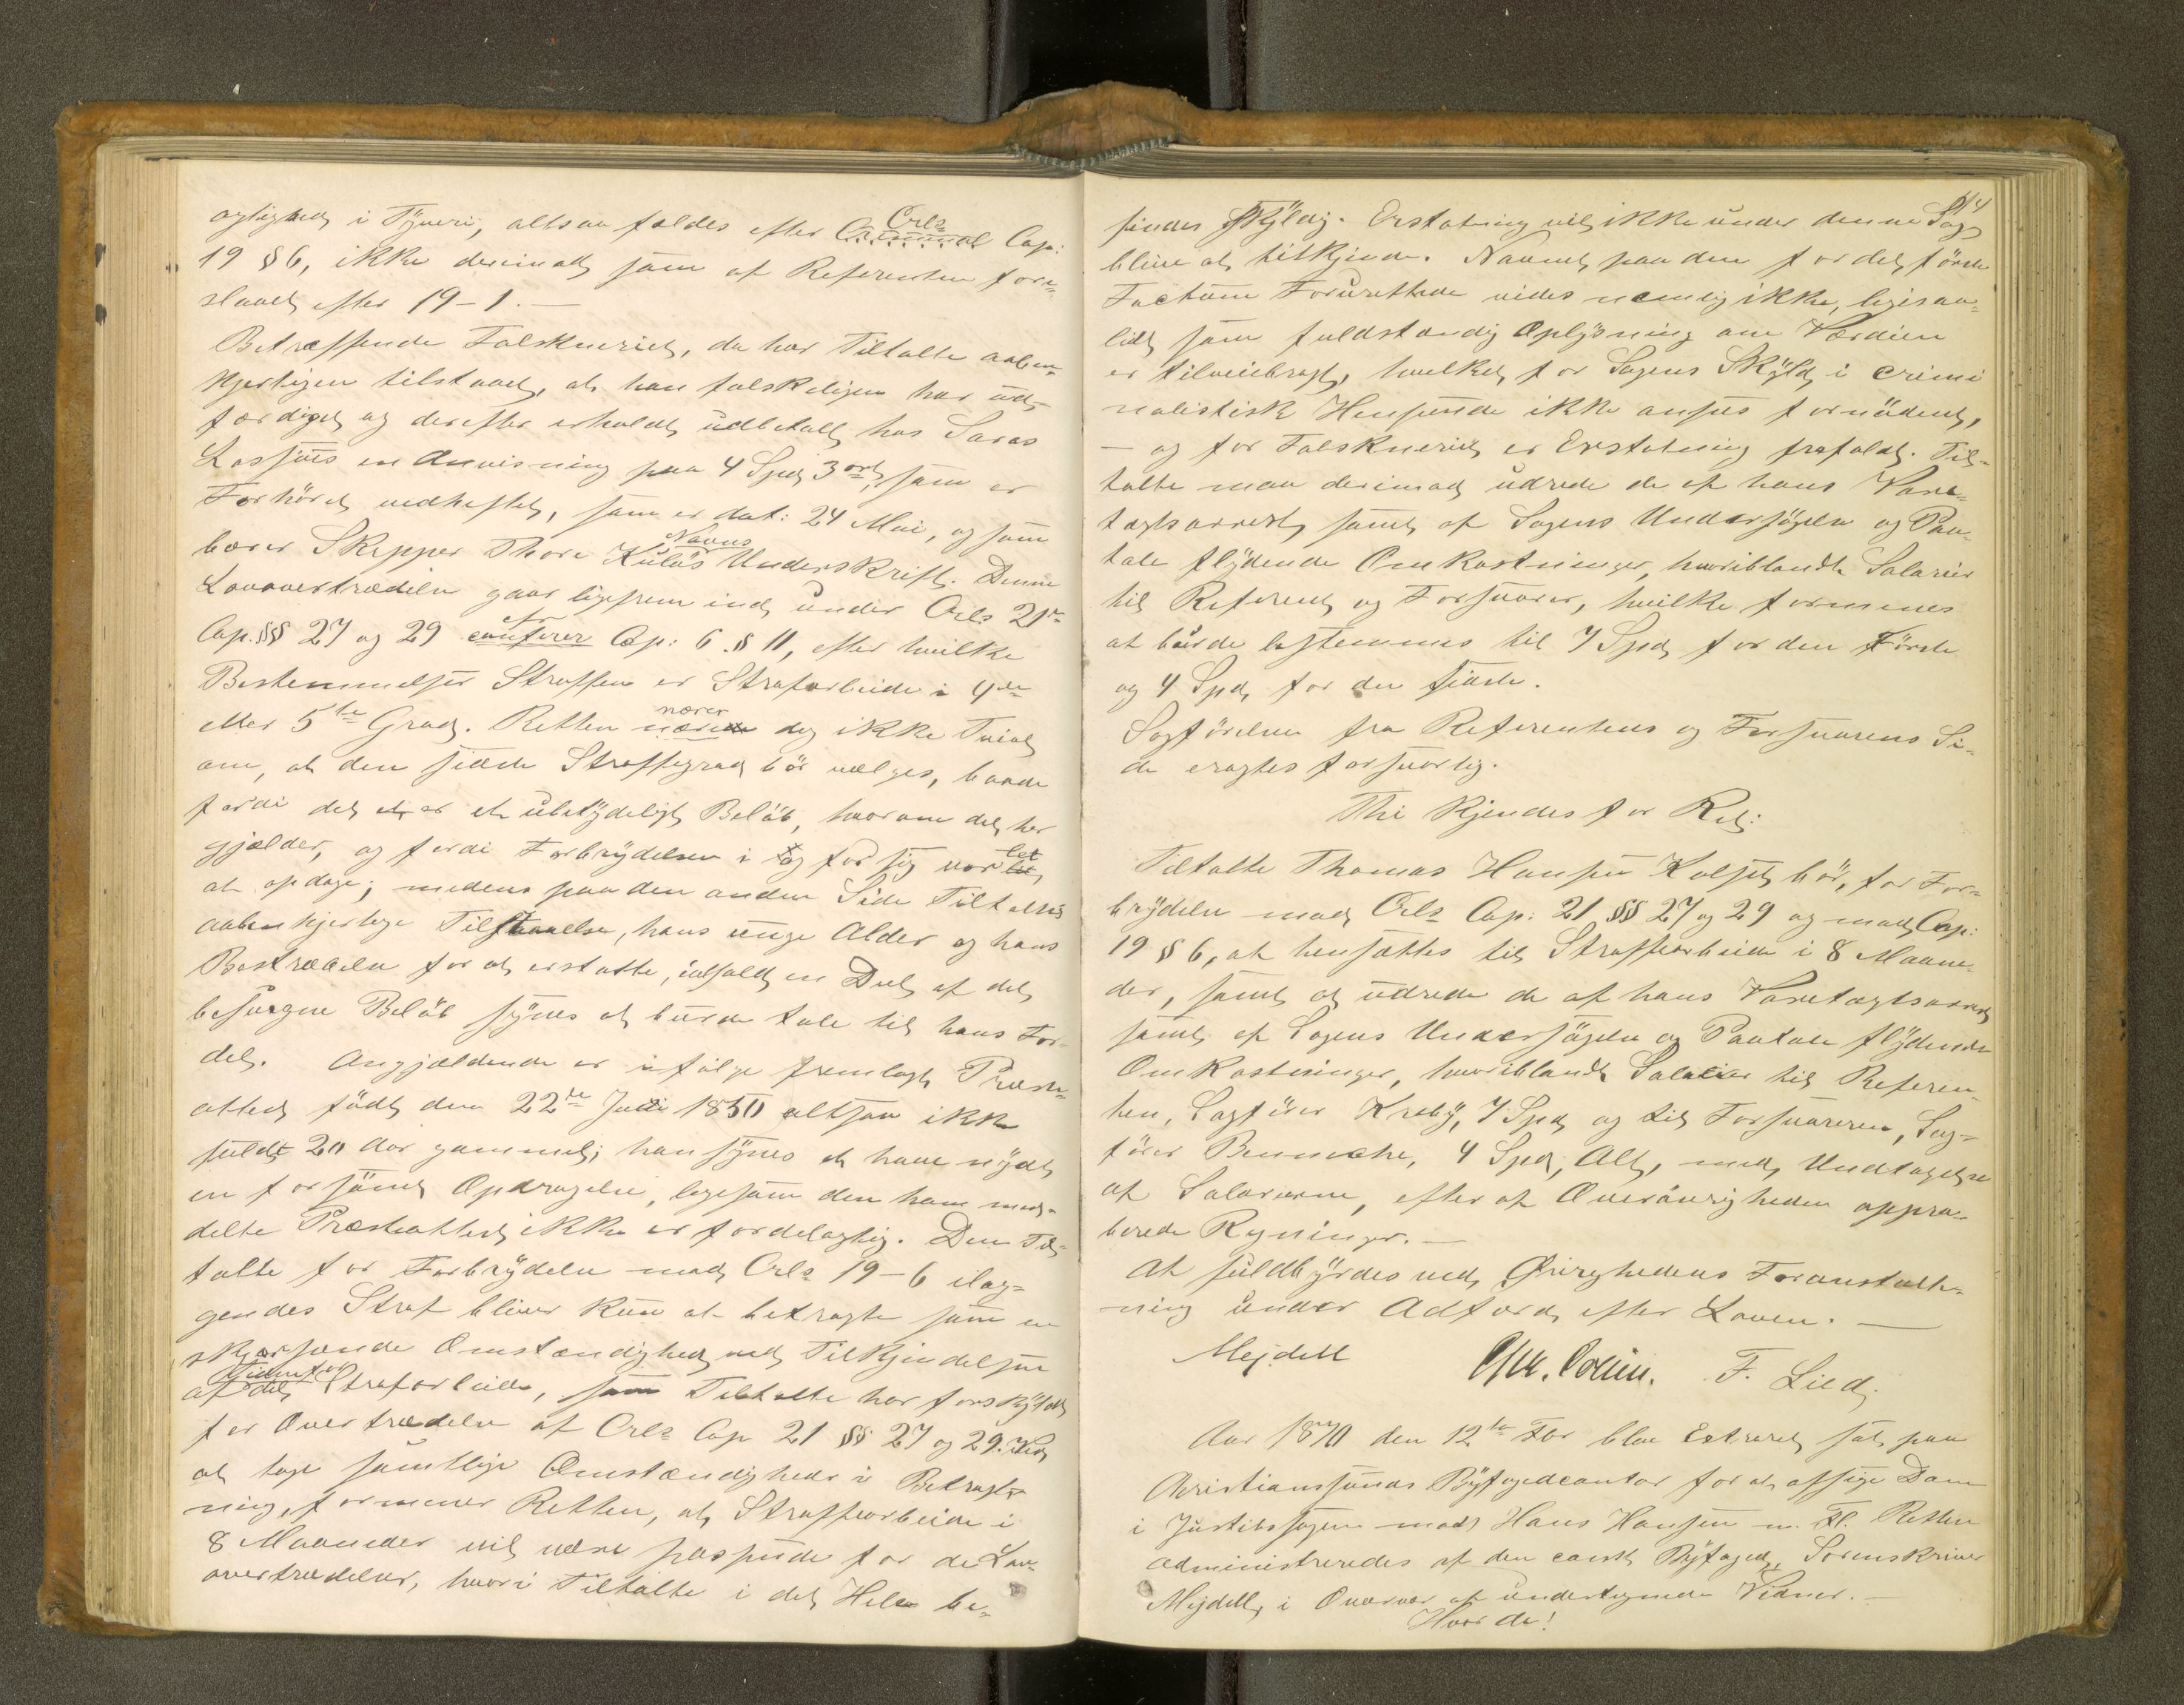 agtighed i Tyveri, altsaa fældes efter Criminal Crls Cap:
19 § 6, ikke derimod som af Referenten fore-
slaaet efter 19-1.—
Betræffende Falskneriet, da har Tiltalte aaben-
hjertigen tilstaaet, at han falskeligen har ud-
færdiget og derefter erholdt udbetalt hos Saras
en Anvisning paa 4 Spd 3 ort, som er
Forhöret vedheftet, som er dat: 24 Mai, og som
bærer Skipper Thore Kulös Navns Underskrift. Denne
Lovovertrædelse gaar ligefrem ind under Crls 21de
Cap. §§ 27 og 29 cfr conferer Cap: 6 § 11, efter hvilke
Bestemmelser Straffen er Strafarbeide i 4de
eller 5te Grad. Retten nærer dog ikke Tvivl
om, at den sidste Straffegrad bör vælges, baade
fordi det er et ubetydeligt Belöb, hvorom det her
gjælder, og fordi Forbrydelsen i og for sig var let
at opdage; medens paa den anden Side Tiltaltes
aabenhjertige Tilstaaelse, hans unge Alder og hans
Bestræbelse for at erstatte, ialfald en Deel af det
besvegne Belöb synes at burde tale til hans For-
del. Angjældende er ifölge fremlagt Præste-
attest födt den 22de Juli 1850 altsaa ikke
fuldt 20 Aar gammel; han synes at have nydt
en forsömt Opdragelse, ligesom den ham med-
delte Præsteattest ikke er fordelagtig. Den Til-
talte for Forbrydelse mod Crls 19-6 ilæg-
gendes Straf bliver kun at betragte som en
skjærpende Omstændighed ved Tilkjendelsen
af det Strafarbeide, som Tiltalte har forskyldt
for Overtrædelse af Crls Cap 21 §§ 27 og 29. Ved
at tage samtlige Omstændigheder i Betragt-
ning, formener Retten, at Straffarbeide i
8 Maaneder vil være passende for de Lov-
overtrædelser, hvori Tiltalte i det Hele be-
114
findes skyldig. Erstatning vil ikke under denne Sag
blive at tilkjende. Navnet paa den for det förste
Factum Forurettede vides nemlig ikke, ligesaa-
lidt som fuldstændig Oplysning om Værdien
er tilveiebragt, hvilket for Sagens Skyld i crimi
nalistisk Henseende ikke ansees fornödent,
— og for Falskneriet er Erstatning frafaldt. Til-
talte maa derimod udrede de af hans Vare-
tægtsarrest samt af Sagens Undersögelse og Paa-
tale flydende Omkostninger, hvoriblandt Salarier
til Referent og Forsvarer, hvilke formenes
at burde bestemmes til 7 Spd for den Förste
og 4 Spd, for den sidste.
Sagförelsen fra Referentens og Forsvarens Si-
de eragtes forsvarlig.
Thi kjendes for Ret:
Tiltalte Thomas Hansen Kolset bör, for For-
brydelse mod Crls Cap: 21 §§ 27 og 29 og mod Cap:
19 § 6, at hensættes til Straffarbeide i 8 Maane-
der, samt at udrede de af hans Varetægtsarrest
samt af Sagens Undersögelse og Paatale flydende
Omkostninger, hvoriblandt Salarier til Referen-
ten, Sagförer Kreby, 7 Spd, og til Forsvareren, Sag-
förer Benneche, 4 Spd; Alt, med Undtagelse
af Salarierne, efter af Overövrigheden appro-
berede Regninger.—
At fuldbyrdes ved Øvrighedens Foranstalt-
ning under Adfærd efter Loven.—
Mejdell F. Lied.
Aar 1870 den 12te blev Extraret sat paa
Christianssunds Byfogedcontor for at afsige Dom
i Justitssagen mod Hans Hansen m. Fl. Retten
administreredes af den const. Byfoged, Sorenskriver
Mejdell, i Overvær af undertegnede Vidner.—
Hvorda!